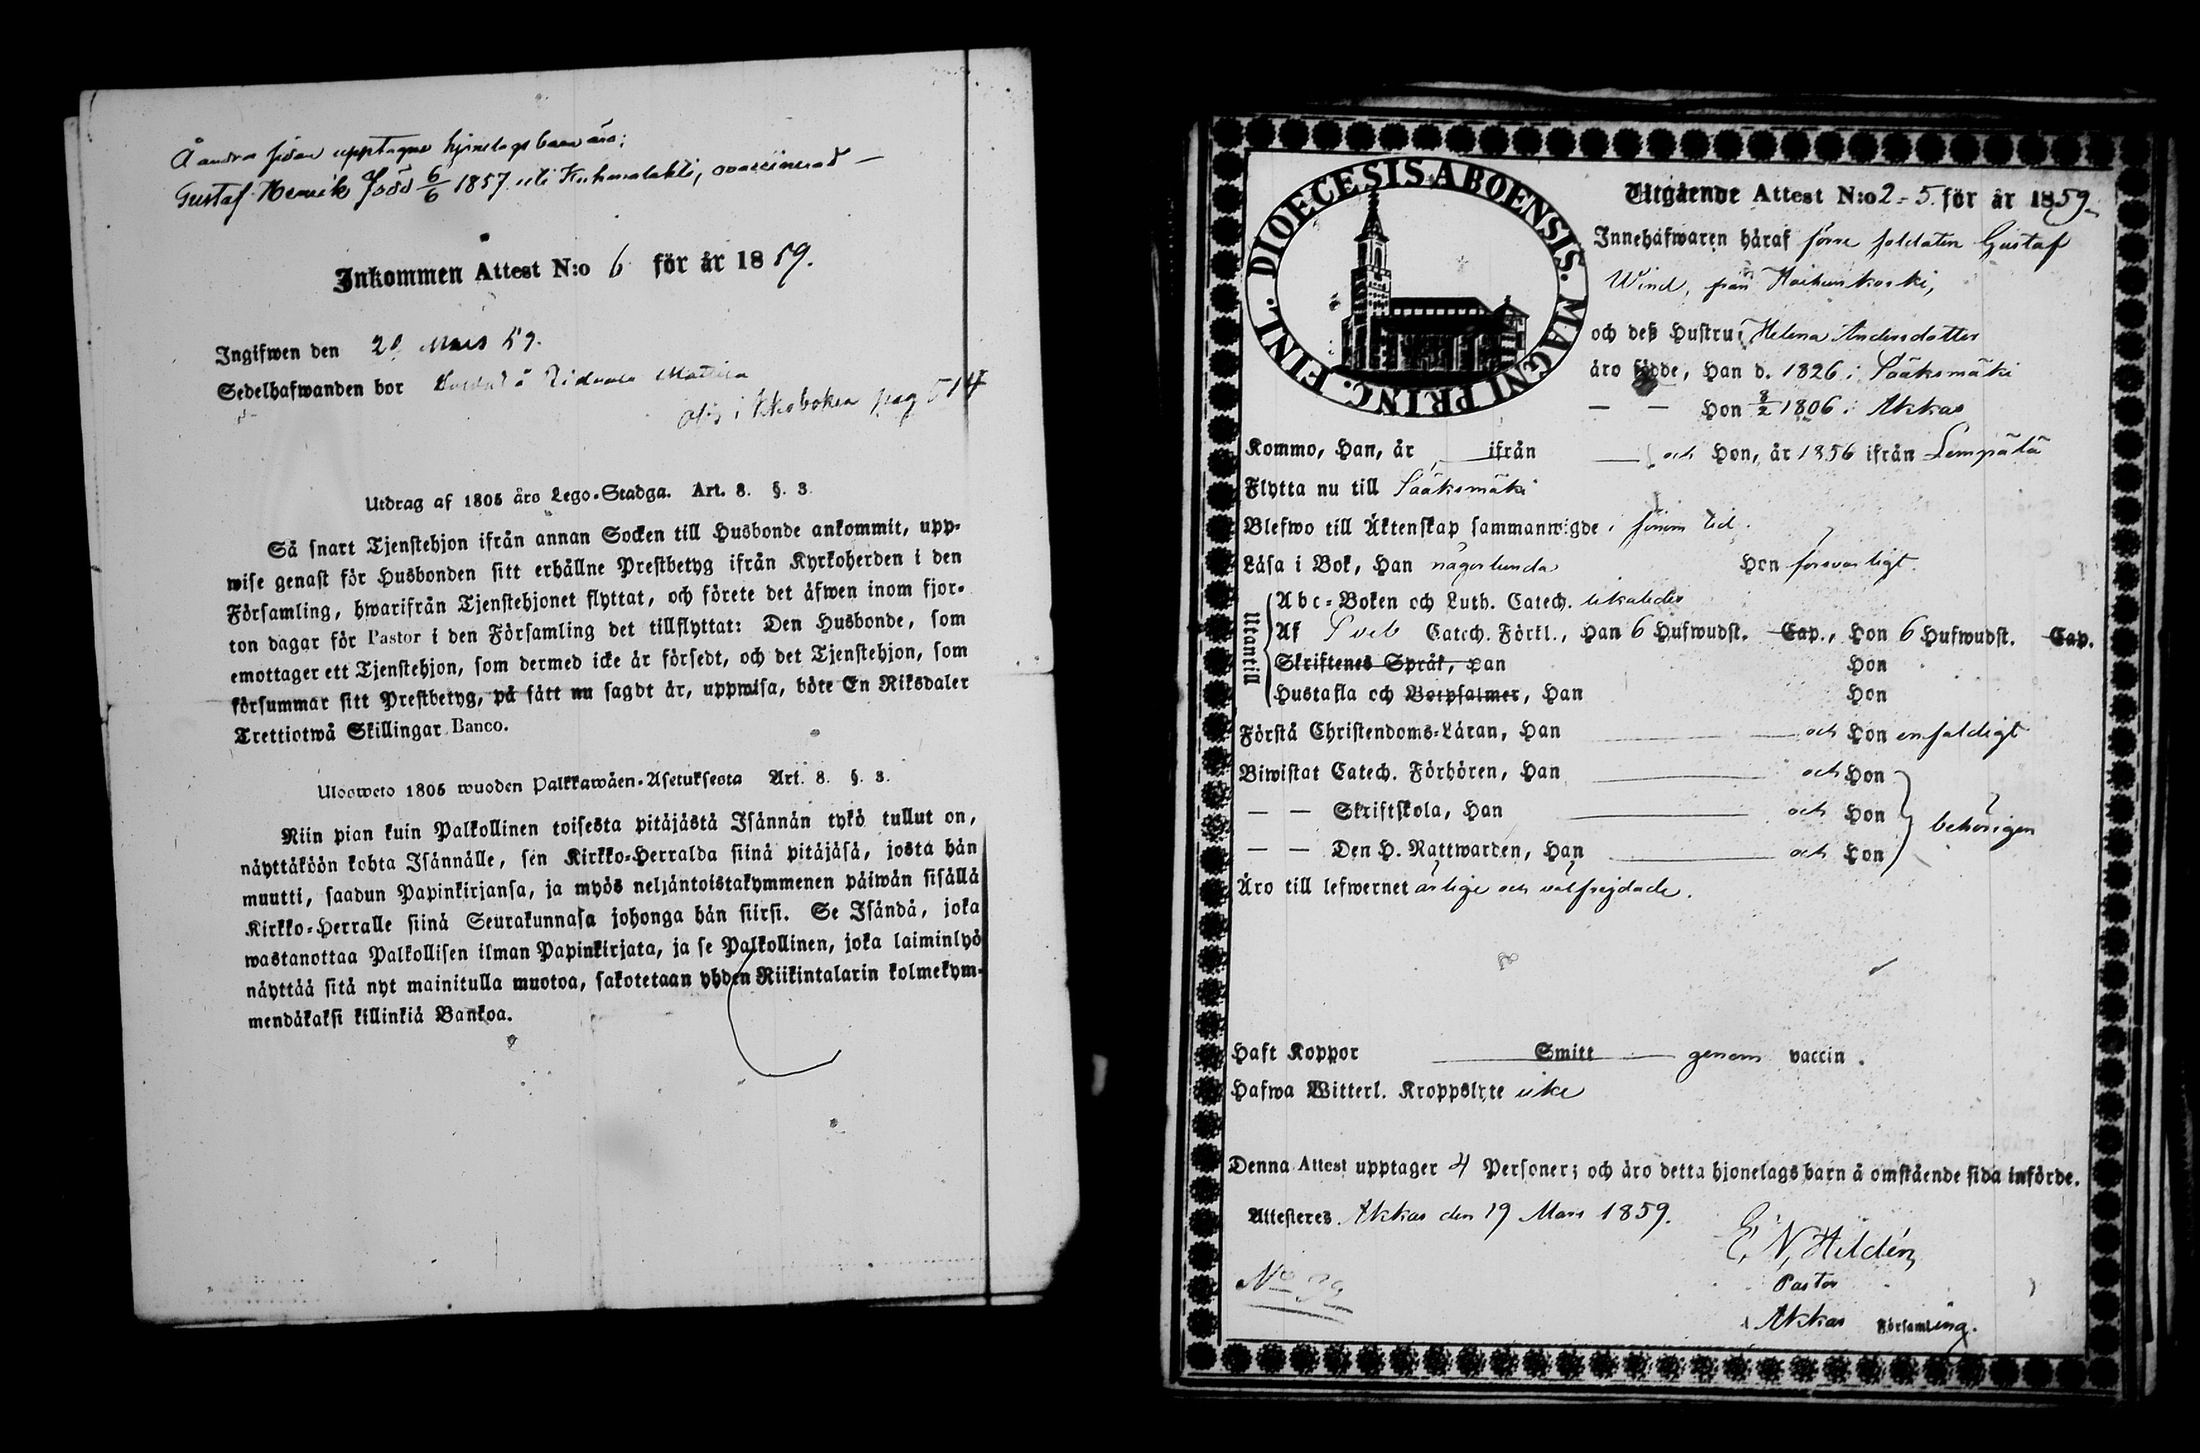 Å andra sidan upptagne hjonelags barn äro:
Gustaf Henrik född 6/6 1857 uti Kuhmalahti, ovaccinerad —
Inkommen Attest N:o 6 för år 1859.
Ingifwen den 20 Mars 59.
Sedelhafwanden bor Mattila
i Kkoboken pag 514
Utdrag af 1805 års Lego-Stadga. Art. 8. §. 3.
Så snart Tjenstehjon ifrån annan Socken till Husbonde ankommit, upp-
wise genast för Husbonden sitt erhållne Prestbetyg ifrån Kyrkoherden i den
Församling, hwarifrån Tjenstehjonet flyttat, och förete det äfwen inom fjor-
ton dagar för Pastor i den Församling det tillflyttat: Den Husbonde, som
emottager ett Tjenstehjon, som dermed icke är försedt, och det Tjenstehjon, som
försummar sitt Prestbetyg, på sätt nu sagdt är, uppwisa, böte En Riksdaler
Trettiotwå Skillingar Banco.
Ulosweto 1805 wuoden Palkkawäen-Asetuksesta Art. 8. §. 3.
Niin pian kuin Palkollinen toisesta pitäjästä Isännän tykö tullut on,
näyttäköön kohta Isännälle, sen Kirkko-Herralda siinä pitäjäsä, josta hän
muutti, saadun Papinkirjansa, ja myös neljäntoistakymmenen päiwän sisällä
Kirkko-Herralle siinä Seurakunnasa johonga hän siirsi. Se Isändä, joka
wastanottaa Palkollisen ilman Papinkirjata, ja se Palkollinen, joka laiminlyö
näyttää sitä nyt mainitulla muotoa, sakotetaan yhden Riikintalarin kolmekym-
mendäkaksi killinkiä Bankoa.
DIOECESIS ABOENSIS. MAGNI PRINC. FINL.
Utgående Attest N:o 2-5 för år 1859.
Innehafwaren häraf förre soldaten Gustaf
Wind, från Haihunkoski,
och deß Hustru Helena Andersdotter
äro födde, Han d. 1826 i Sääksmäki
— — Hon 8/2 1806 i Akkas
Kommo, Han, år — ifrån — och Hon, år 1856 ifrån Lempälä
Flytta nu till Sääksmäki
Blefwo till Äktenskap sammanwigde i förra tid.
Läsa i Bok, Han någorlunda Hon försvarligt
Utantill
Abc-Boken och Luth. Catech. likaledes
Af Sveb Catech. Förkl., Han 6 Hufwudst. Cap., Hon 6 Hufwudst. Cap.
Skriftenes Språk, Han Hon
Hustafla och Botpsalmer, Han Hon
Förstå Christendoms-Läran, Han — och Hon enfaldigt
Biwistat Catech. Förhören, Han — och Hon
— — Skriftskola, Han — och Hon behörigen
— — Den H. Nattwarden, Han — och Hon
Äro till lefwernet ärlige och välfrejdade.
Haft Koppor — Smitt — genom vaccin.
Hafwa Witterl. Kroppslyte icke
Denna Attest upptager 4 Personer; och äro detta hjonelags barn å omstående sida införde.
Attesteres Akkas den 19 Mars 1859.
E. N. Hildén
Pastor
i Akkas Församling.